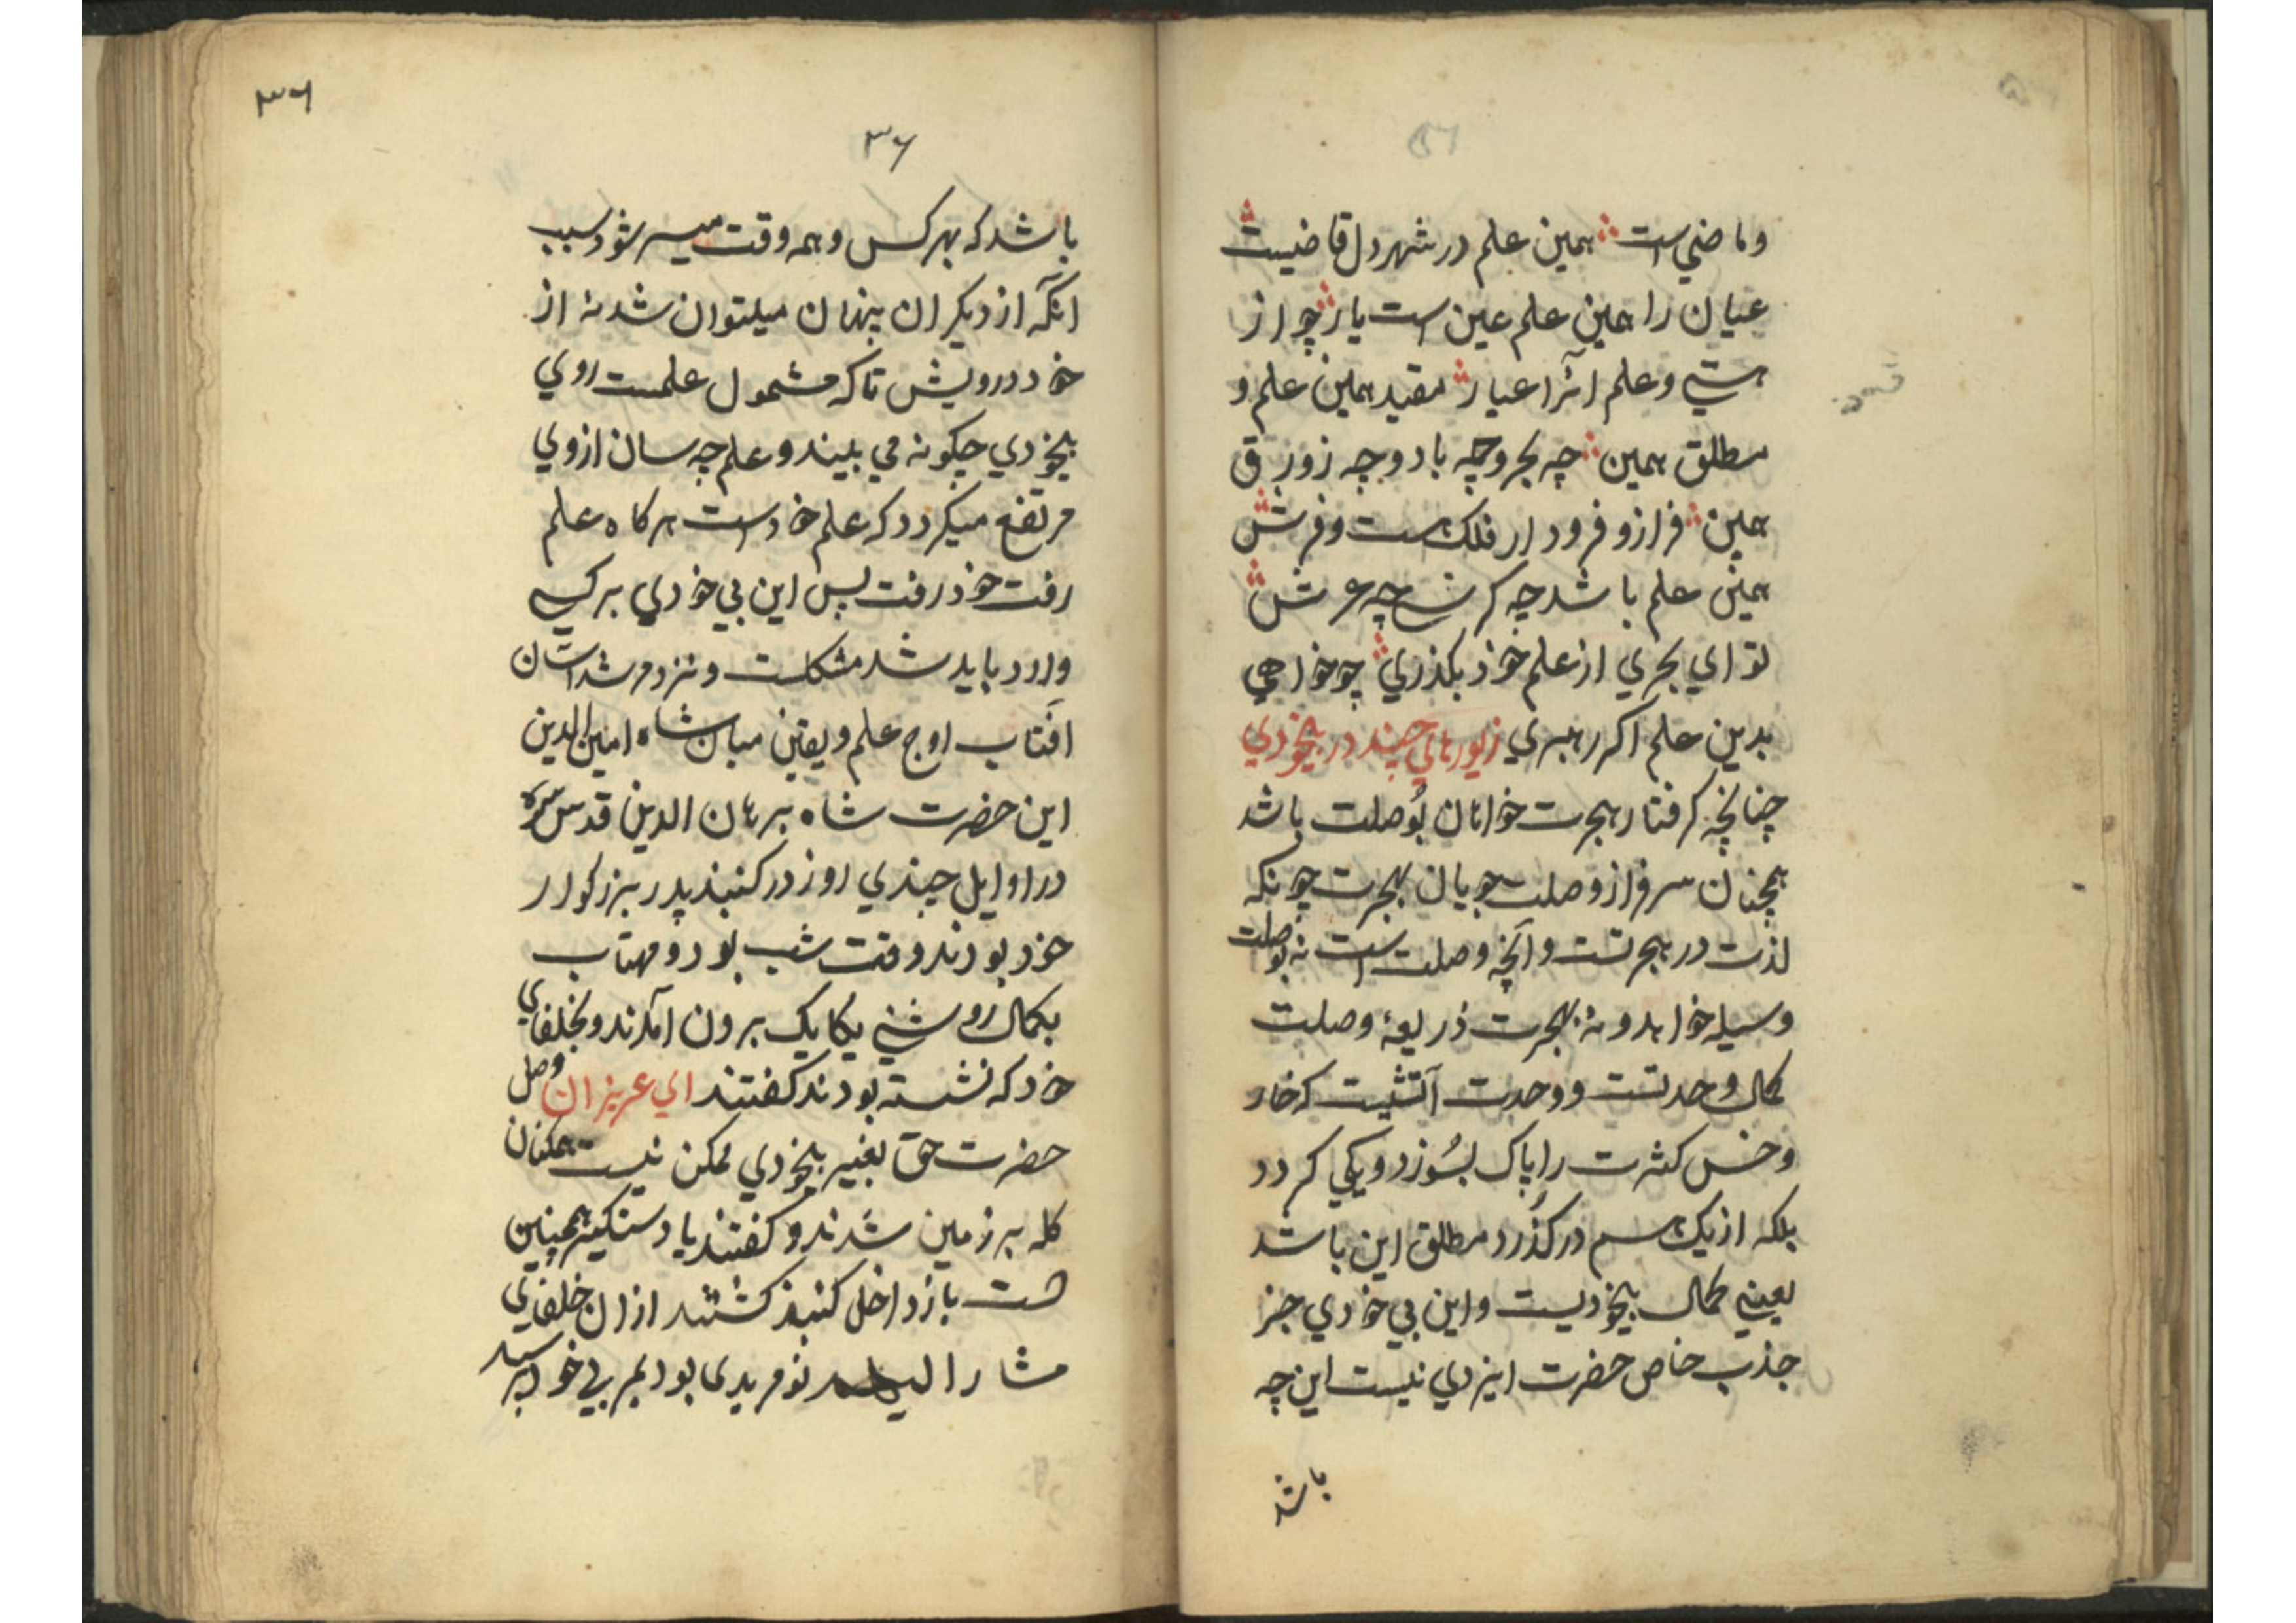 وماضي است همين علم در شهر دل قاضيست
عيان را همين علم عين است يار چو از
هستي و علم انرا عيار مقيد همين علم و
مطلق همين چه بحر و چه باد و چه زورق
همين فراز و فرود ار فلك است و فرش
همين علم باشد چه كرسي چه عرش
تو اي بحري از علم خود بكذري چو خواهي
بدين علم اكر رهبري زيورهاي چند در بيخودي
چنانچه كرفتار هجرت خواهان بُوصلت باشد
همچنان سرفراز وصلت جويان بهجرت چونكه
لذت در هجرتست و آنچه وصلت است نه بوصلت
وسيله خواهد و نه بهجرت ذريعهٔ وصلت
كمال وحدتست و وحدت آتشيست كه خار
و خس كثرت را پاك بسُوزد و يكي كردد
بلكه از يك اسم دركُذرد مطلق اين باشد
يعني كمال بيخوديست و اين بي خودي جز
جذب خاص حضرت ايزدي نيست اين چه
باشد
۳۶
۳۶
باشد كه بهر كس و همه وقت ميسر شود سبب
انكه از ديكران پنهان ميتوان شد نه از
خود درويش تا كه مشمول علمست روي
بيخودي چكونه مي بيند و علم چه سان ازوي
مرتفع ميكردد كه علم خود است هركاه علم
رفت خود رفت پس اين بي خودي بر كسي
وارد بايد شد مشكلست و نزد مرشد آسان
افتاب اوج علم و يقين ميان شاه امين الدين
ابن حضرت شاه برهان الدين قدس سره
در اوايل چندي روز در كنبذ پدر بزركوار
خود بودند وقت شب بود و مهتاب
بكمال روشني يكايك برون آمدند و بخلفاي
خود كه نشسته بودند كفتند اي عزيزان وصل
حضرت حق بغير بيخودي ممكن نيست همكنان
كله بر زمين شدند و كفتند يا دستكير همچنين
است باز داخل كنبذ كشتند ازان خلفاي
مشار اليه نو مريدي ما بوديم بي خود